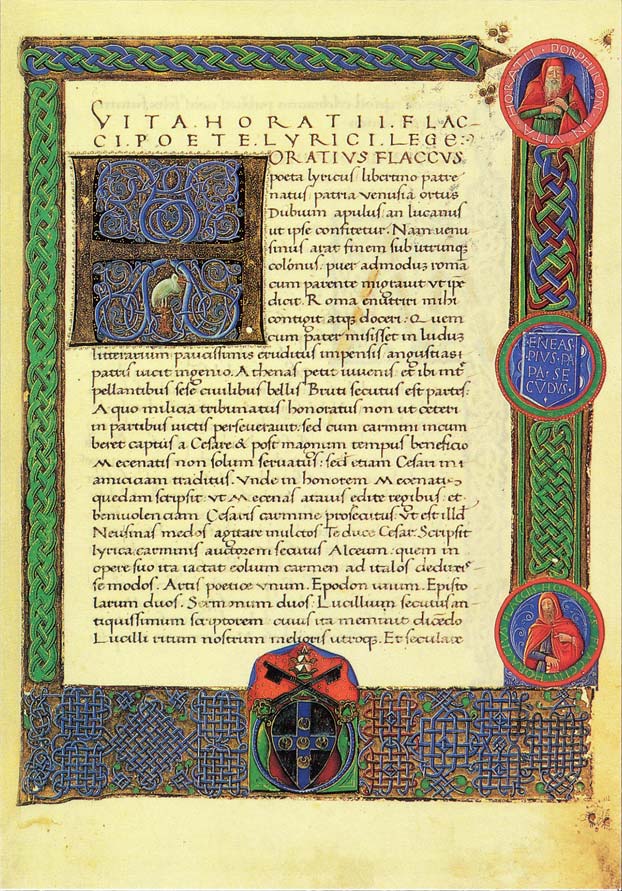 VITA HORATII FLAC-
CI POETE LYRICI LEGE:
HORATIVS FLACCVS
poeta lyricus libertino patre
natus, patria venusia ortus
Dubium apulus an lucanus
ut ipse confitetur. Nam venu
sinus arat finem sub utrunque
colonus. puer admodum roma
cum parente migrauit vt ipe
dicit. Romæ nutriri mihi
contigit atque doceri: Quem
cum pater misisset in ludum
litterarium paucissimis eruditus impensis angustias
patris uicit ingenio. Athenas petit iuuenis et ibi
pellantibus sese ciuilibus bellis Bruti secutus est partes.
A quo milicia tribunatus honoratus non ut ceteri
in partibus uictis perseuerauit. sed cum carmini incum
beret captus a Cesare & post magnum tempus beneficio
Mecenatis non solum seruatus: sed etiam Cesari in
amiciciam traditus. Vnde in honorem Mecenatis
quedam scripsit vt Mecenas atauis edite regibus: et
beniuolenciam Cesaris carmine prosecutus. vt est illud
Neu sinas medos agitare inultos Te duce Cesar. Scripsit
lyrica carminis auctorem secutus Alceum. quem in
opere suo ita iactat eolium carmen ad italos
se modos. Artis poetice vnum. Epodon vnum. Episto
larum duos. Sermonum duos. Lucillium secutus an-
tiquissimum scriptorem cuius ita meminit dicendo
Lucilli ritum nostrum melioris utroque. Et seculare
PORPHIRION IN VITA HORATII
ENEAS
PIVS PA
PA SE
CVDVS
HORATIVS FLACCVS